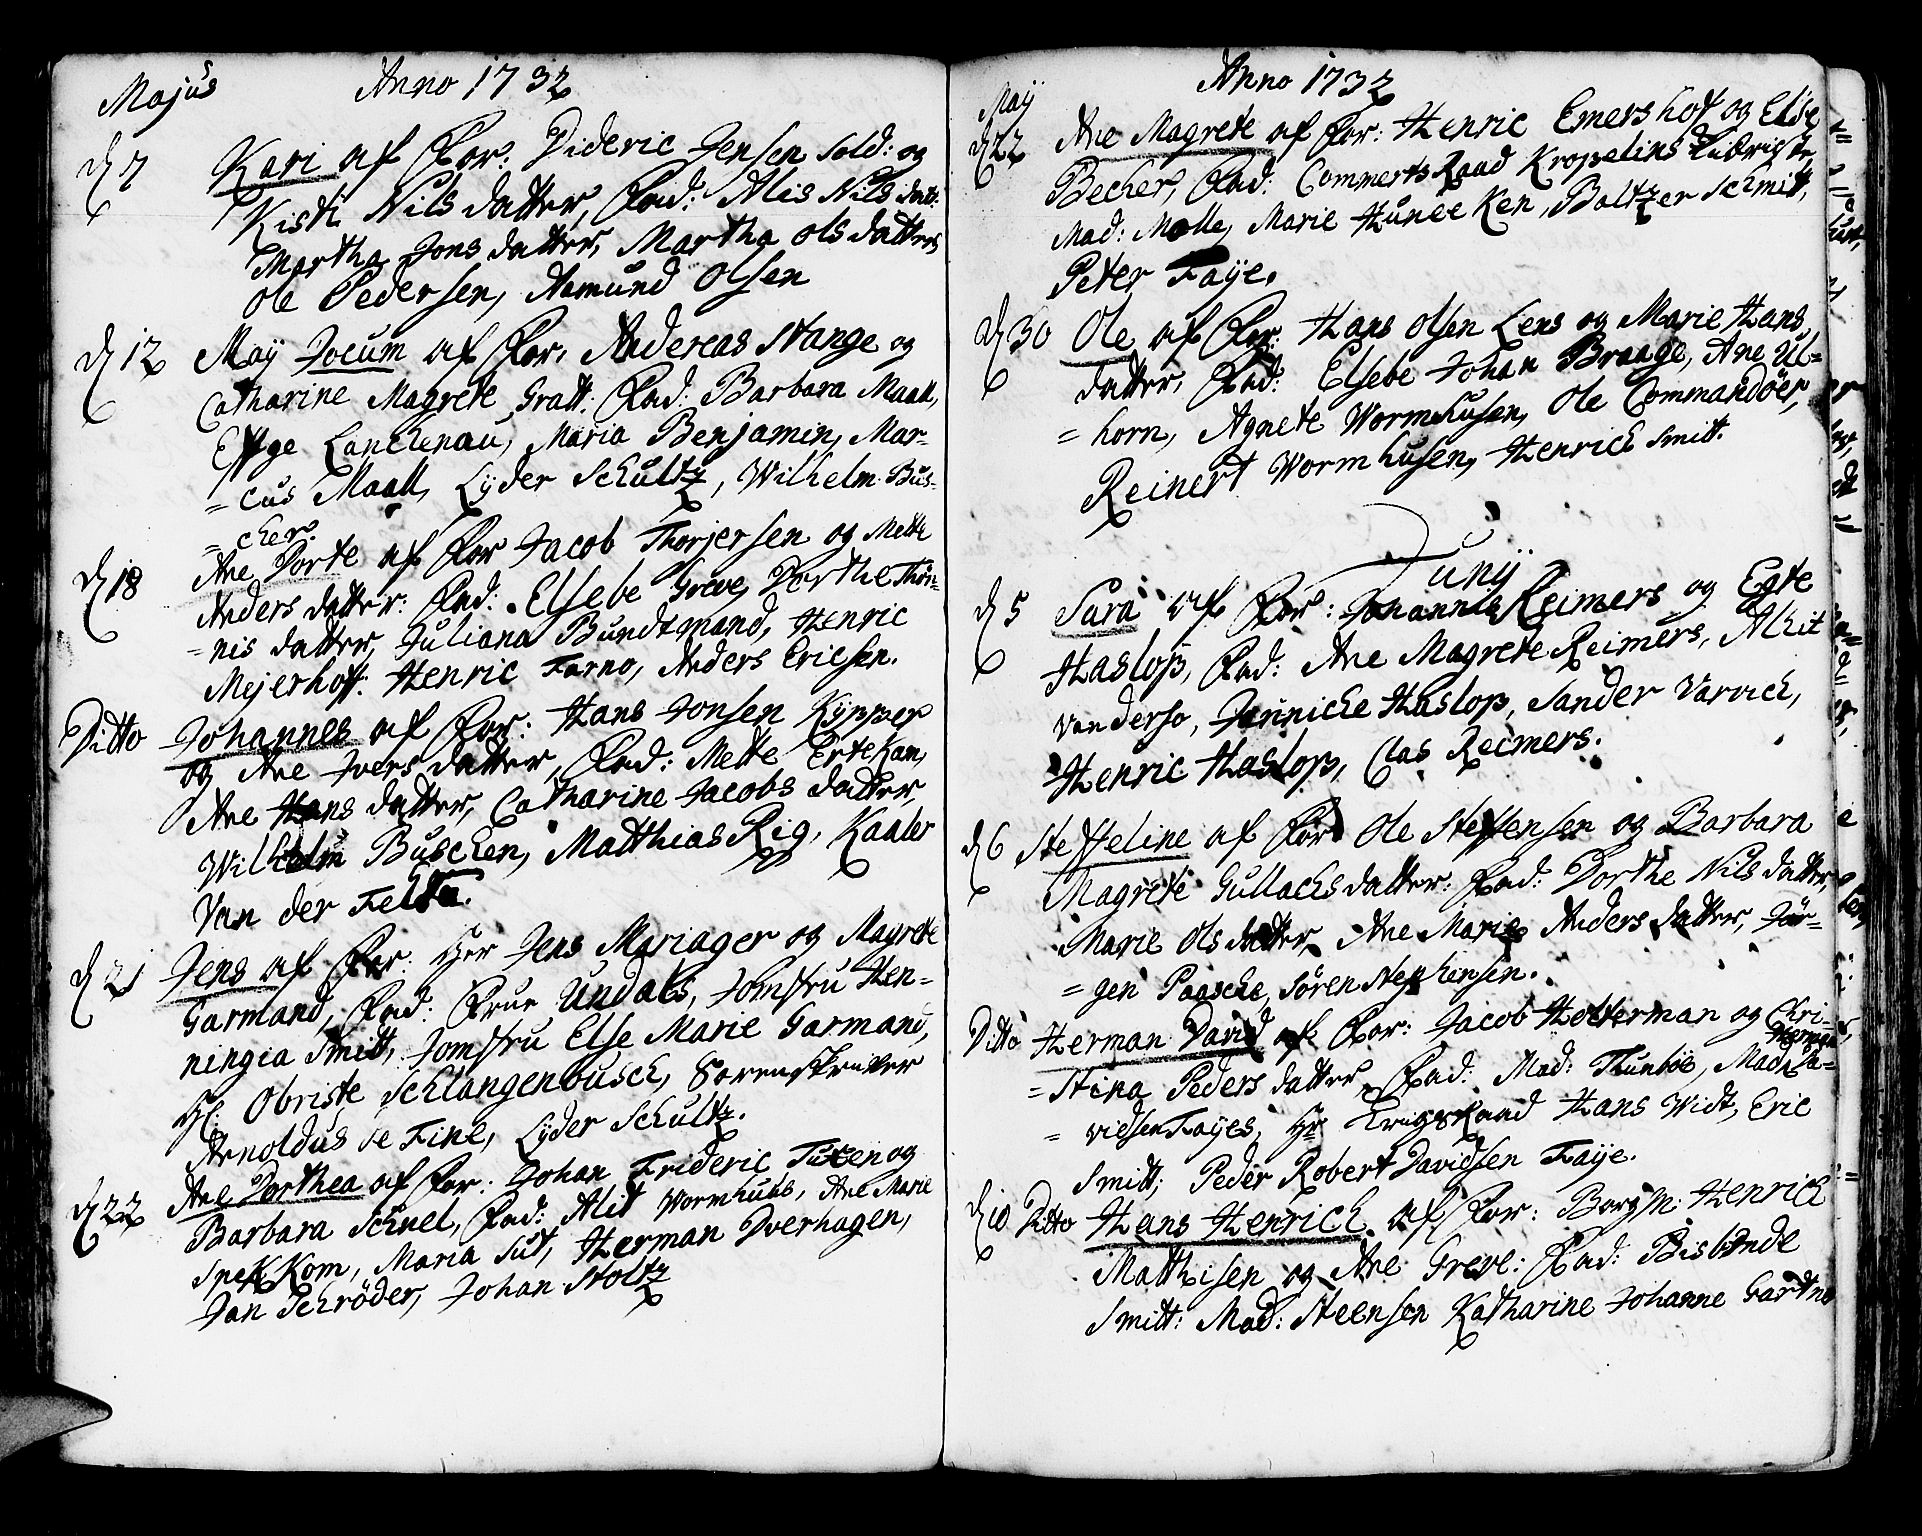 Majus Anno 1732
d 7 Kari af For: Dideric Jensen Sold: og
Kisti Nils datter, Fad: Alis Nils datt:
Martha Jons datter, Martha Ols datter
Ole Pedersen, Aamund Olsen
d 12 Maÿ Jocum af For. Andereas Stange og
Catharine Magrete Gratt: Fad: Barbara Maatt,
Lanckenau, Maria Benjamin, Mar-
= cus Maatt, Lÿder Schultz, Wilhelm Bus-
= cher.
d 18 Ane Dorte af For Jacob Thorjersen og Mette
Anders datter: Fad: Elsebe Greve, Dorthe Thön-
= nis datter, Juliana Bundtmand, Henric
Mejerhoff: Henric Farno, Anders Ericsen.
Ditto Johannes af For: Hans Jonsen Kÿpper
og Ane Ivers datter, Fad: Mette Ertekam,
Ane Hans datter, Catharine Jacobs datter,
Wilhelm Buschen, Matthias Rig, Kaaler
Van der Felta.
d 21 Jens af For: Her Jens Mariager og Magrete
Garmand, Fad: Frue Undals, Jomfru Hen-
ningia Smitt, Jomfru Else Marie Garmand,
Hr: Obriste Schlangenbusch, Sorenskriffver
Arnoldus de Fine, Lÿder Schultz.
d 22 Ane Dorthea af For: Johan Frideric Tuxen og
Barbara Schnel, Fad: Alit Wormhuus, Ane Marie
Spekkom, Maria Sut, Herman Dverhagen,
Jan Schröder, Johan Stoltz
Anno 1732
Maÿ
d 22 Ane Magrete af For: Henric Emershof og Else
Becher, Fad: Commerts Raad Kropelins Ludvigste,
Mad: Molle, Marie Hünecken, Baltzer Schmitt,
Peter Faÿe.
d 30 Ole af For: Hans Olsen Lens og Marie Hans
datter, Fad: Elsebe Johan Braage, Ane Ul-
= horn, Agnete Wormhusen, Ole Commandöer,
Reinert Wormhusen, Henrich Smitt.
Junÿ
d 5 Sara af For: Johannes Reimers og Egte
Haslop, Fad: Ane Magrete Reimers, Alhit
Vanderso, Jannicke Haslop, Sander Varvich,
Henric Haslop, Clas Reimers.
d 6 Steffeline af For: Ole Steffensen og Barbara
Magrete Gullachs datter: Fad: Dorthe Nils datter,
Marie Ols datter, Ane Marie Anders datter, Jör-
= gen Paasche, Sören Stephensen.
Ditto Herman David af For: Jacob Holterman og Chri-
= Stina Peders datter, Fad: Mad: Thunboe, Mad: Herman Da-
= vidsen Faÿes, Hr Krigsraad Hans Widt, Eric
Smitt, Peder Robert Davidsen Faÿe.
d 10 Ditto Hans Henrich af For: Borgm: Henrich
Matthisen og Ane Greve: Fad: Bisbonde
Smitt: Mad: Steensen Katharine Johanne Gartne